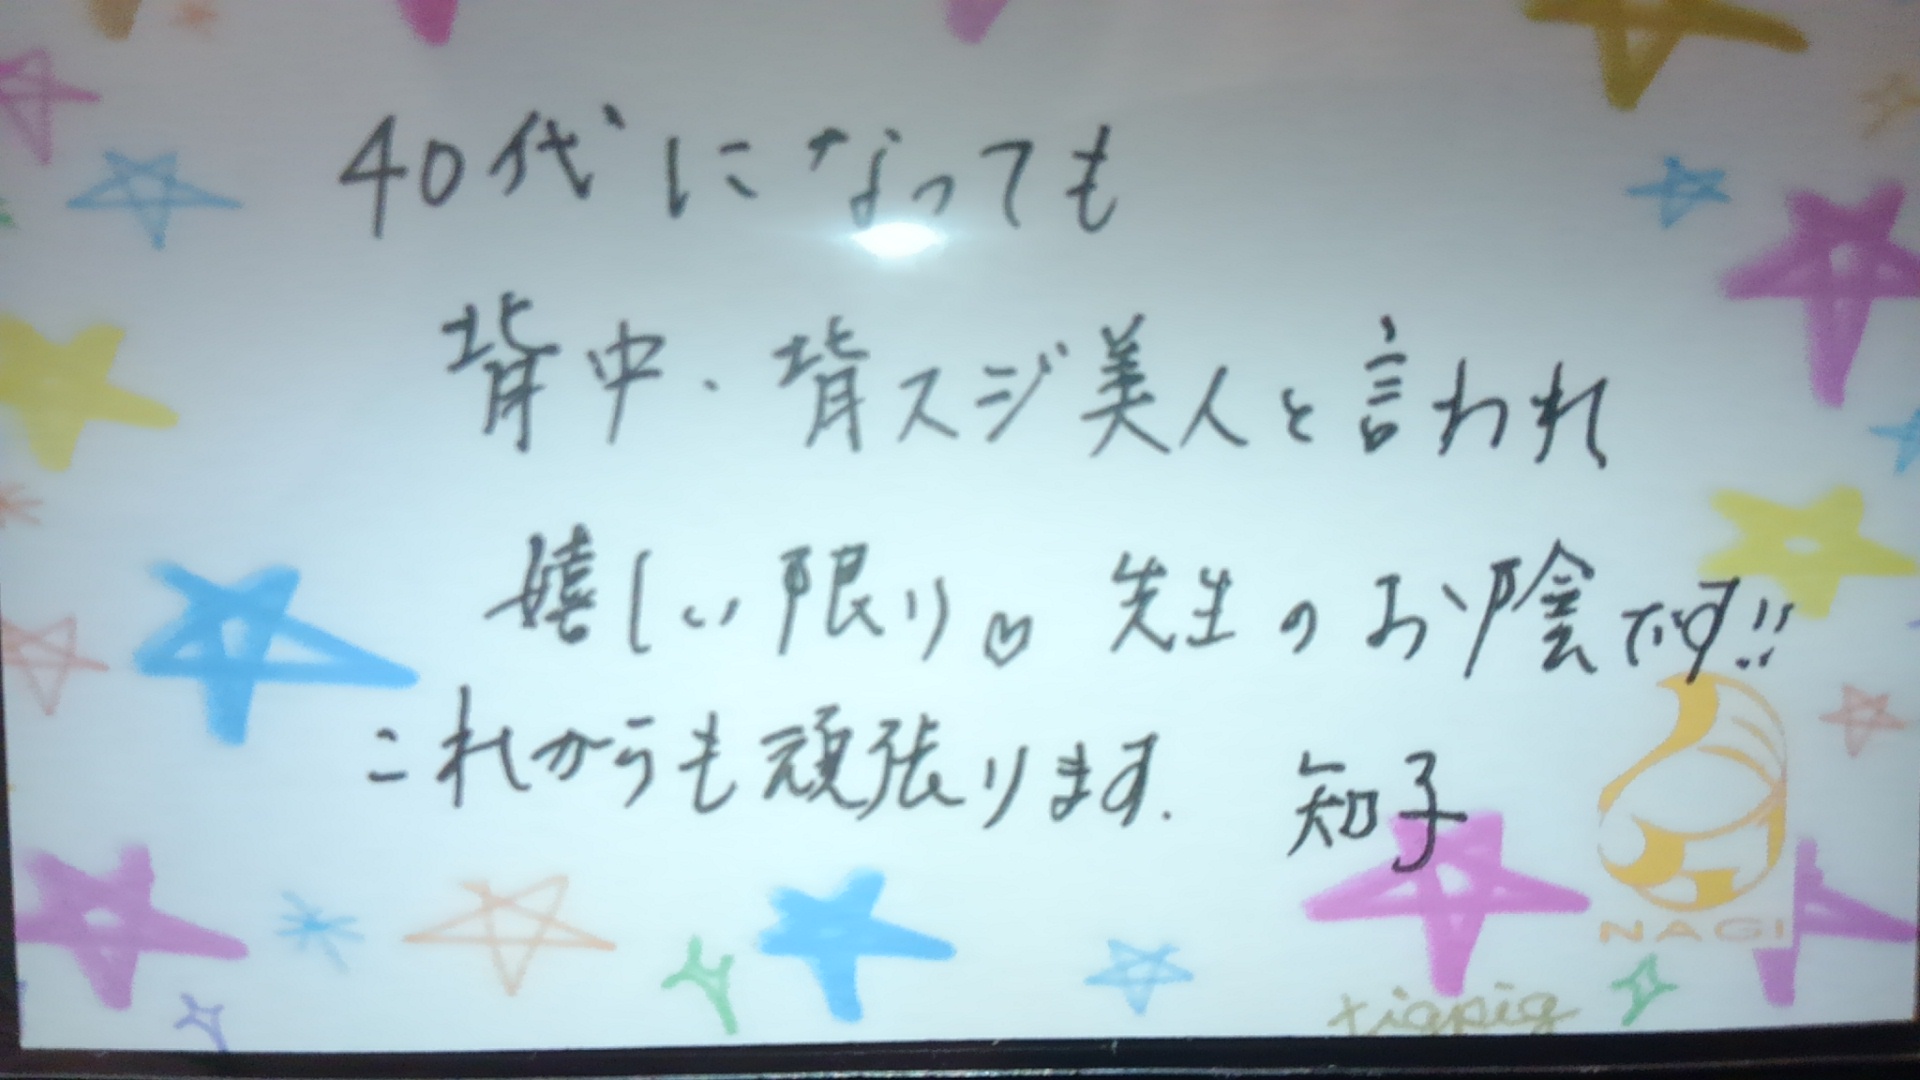 40代になっても
背中・背スジ美人と言われ
嬉しい限り♡ 先生のお陰です!!
これからも頑張ります. 知子
NAGI
tigpig